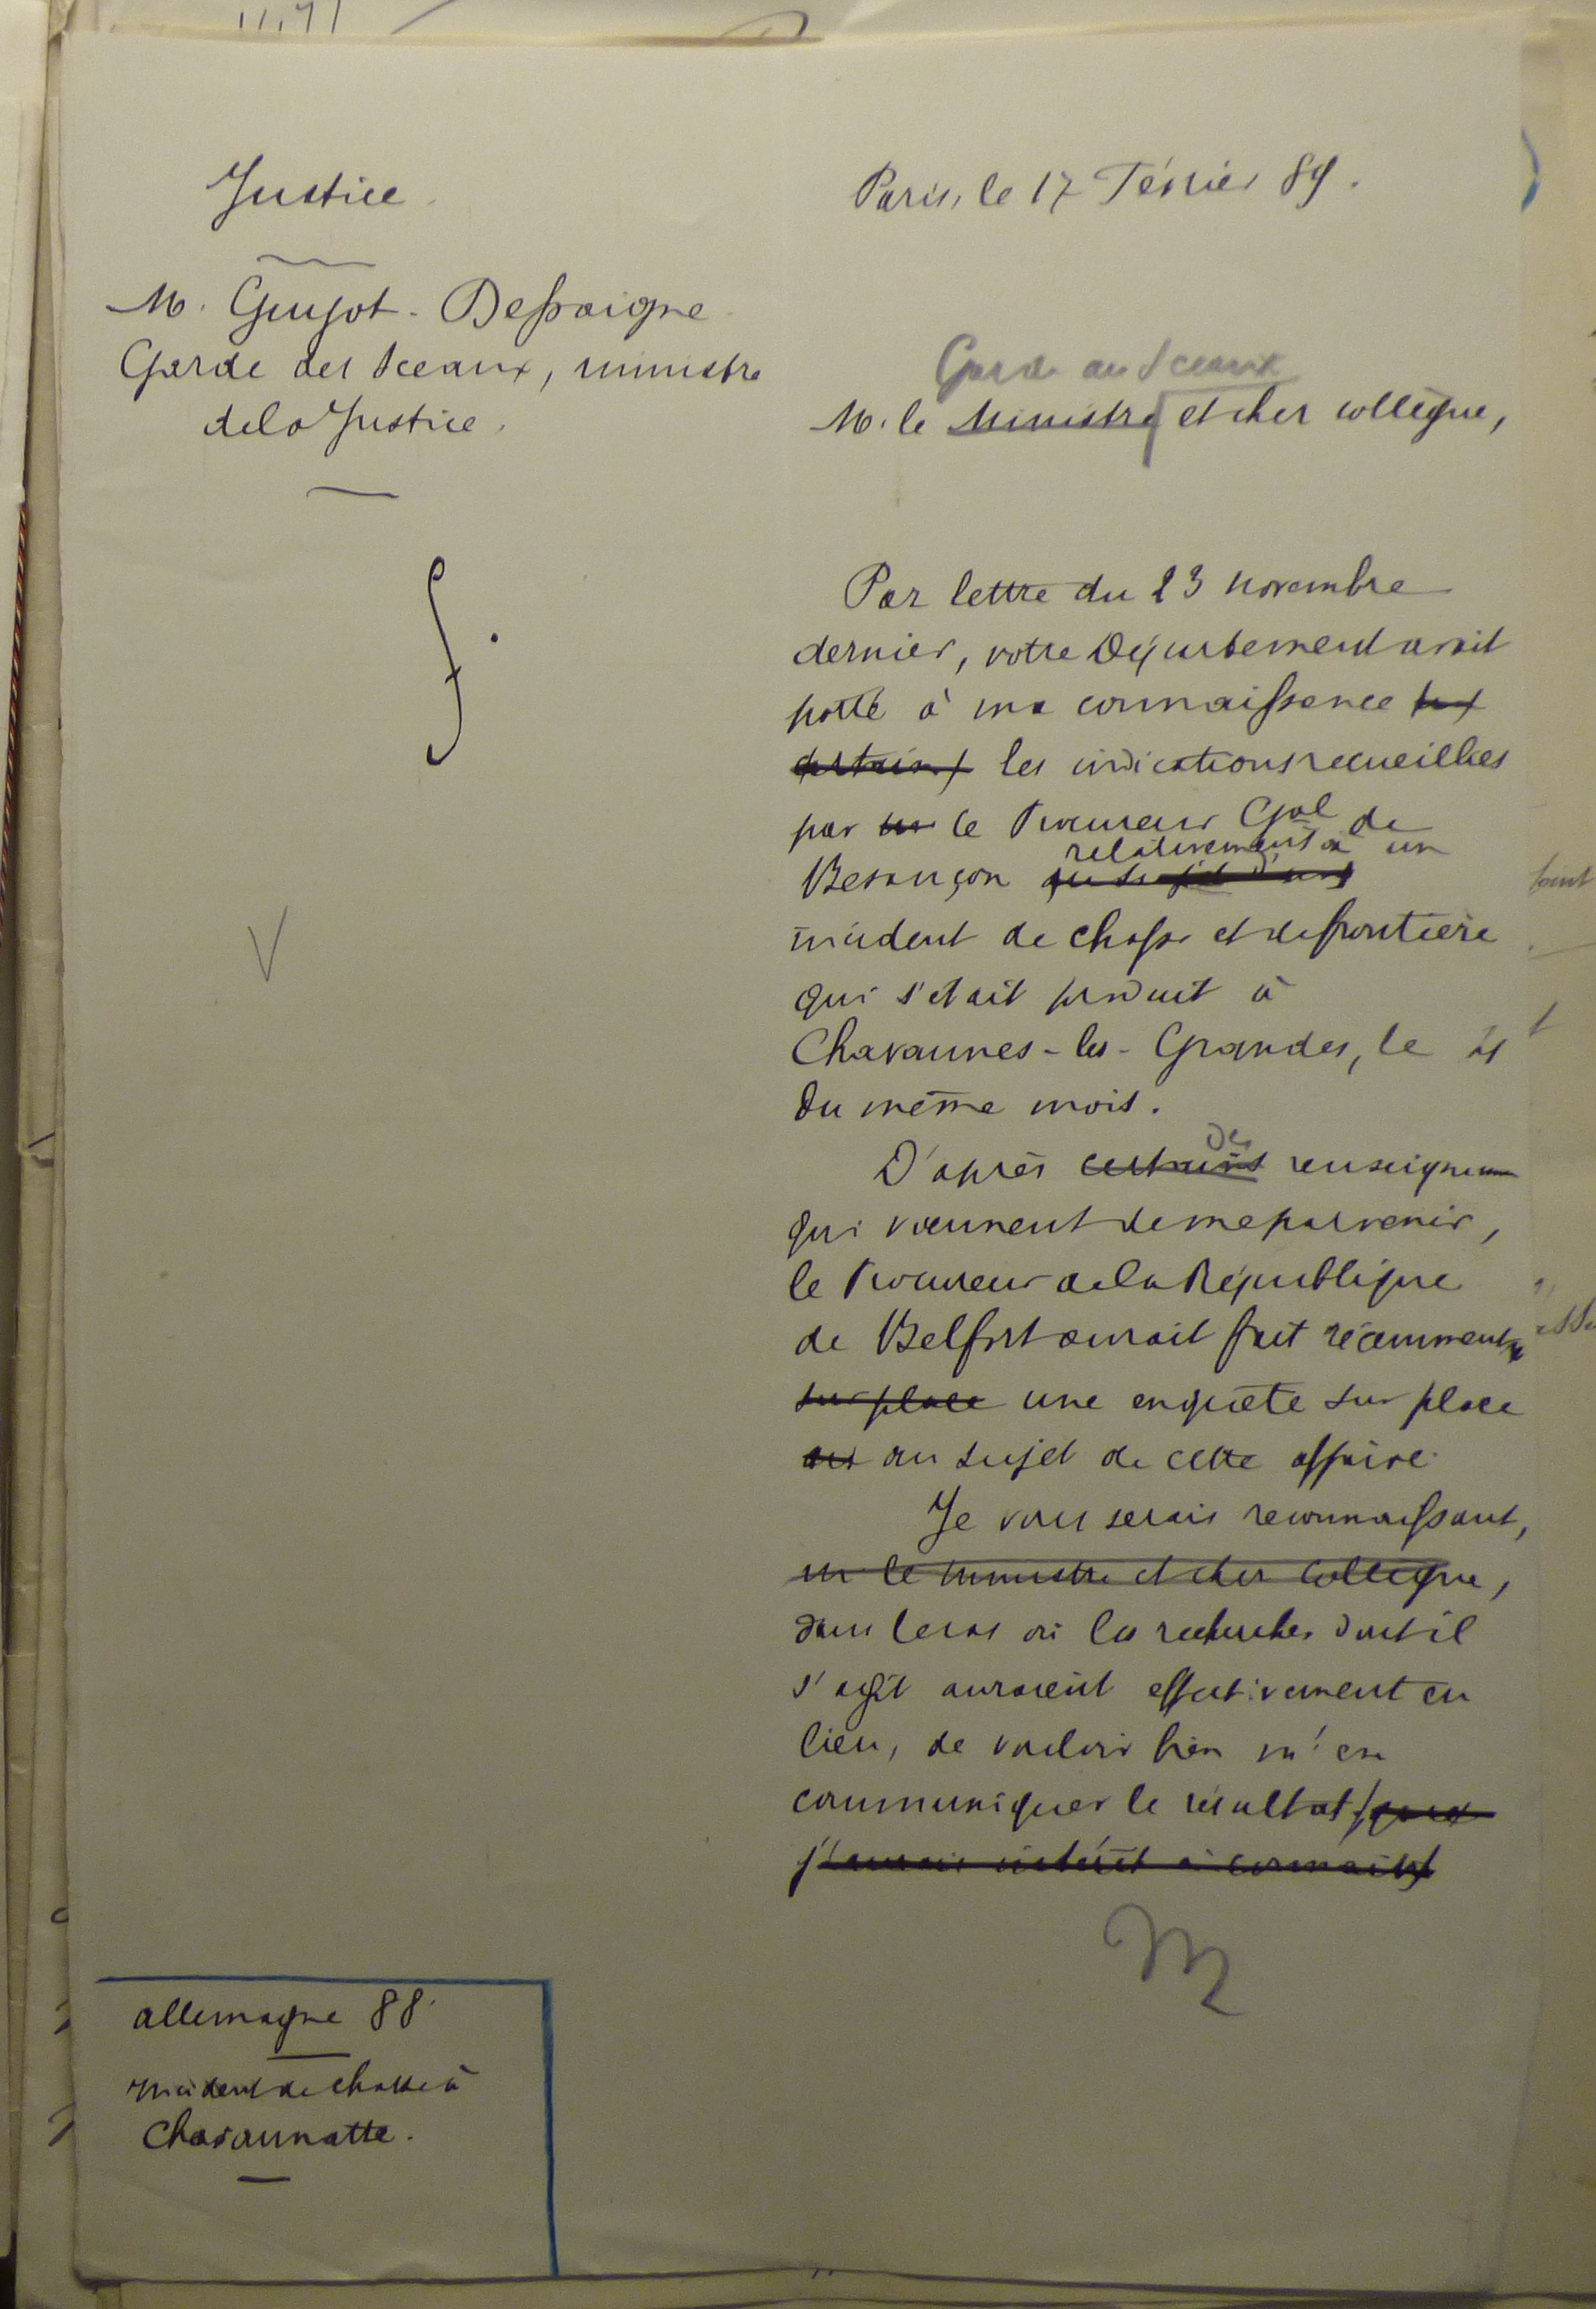 Justice.
M. Guyot-Dessaigne
Garde des Sceaux, ministre
de la Justice.
Paris, le 17 Février 89.
Garde des Sceaux
M. le Ministre et cher collègue,
Par lettre du 23 novembre
dernier, votre Département avait
porté à ma connaissance
certains les indications recueillies
par un le Procureur Gal de
relativement à un
Besançon au sujet d'un
incident de chasse et de frontière
qui s'était produit à
Chavannes-les-Grandes, le 21
du même mois.
des
D'après certains renseignem
qui viennent de me parvenir,
le Procureur de la République
de Belfort aurait fait récemment
sur place une enquête sur place
au sujet de cette affaire.
Je vous serais reconnaissant,
M. le Ministre et cher Collègue,
dans le cas où les recherches dont il
s'agit auraient effectivement eu
lieu, de vouloir bien m'en
communiquer le résultat, que
j'aurais intérêt à connaître
allemagne 88.
Incident de chasse à
Chavannatte.